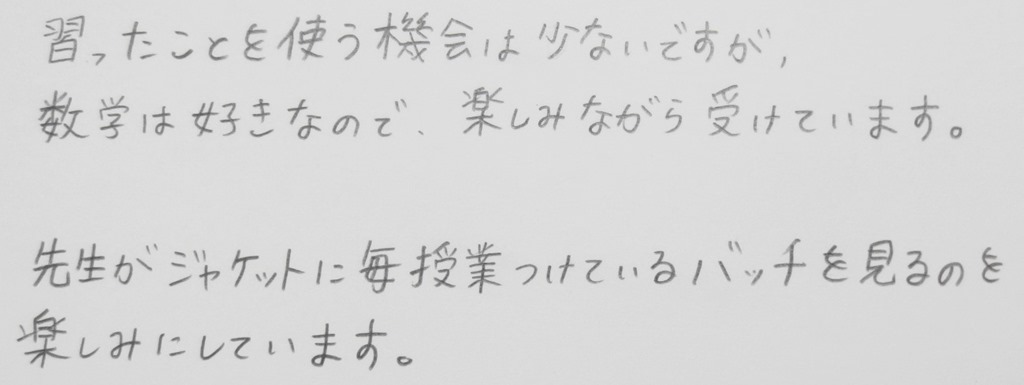 習ったことを使う機会は少ないですが,
数学は好きなので、楽しみながら受けています。
先生がジャケットに毎授業つけているバッチを見るのを
楽しみにしています。